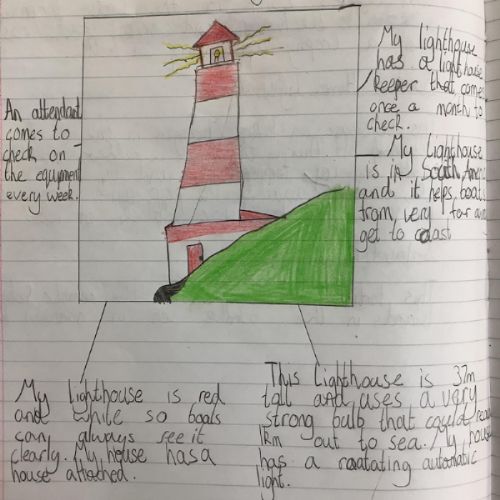 My lighthouse
has a lighthouse
keeper that comes
once a month to
check.
An attendant
comes to
check on
the equipment
every week.
My Lighthouse
is in South
and it helps boats
from very far
get to coast
My Lighthouse is red
and white so boats
can always see it
clearly. My house has a
house attached.
This Lighthouse is 37m
tall and uses a very
strong bulb that could
1km out to sea. My
has a roatating automatic
light.